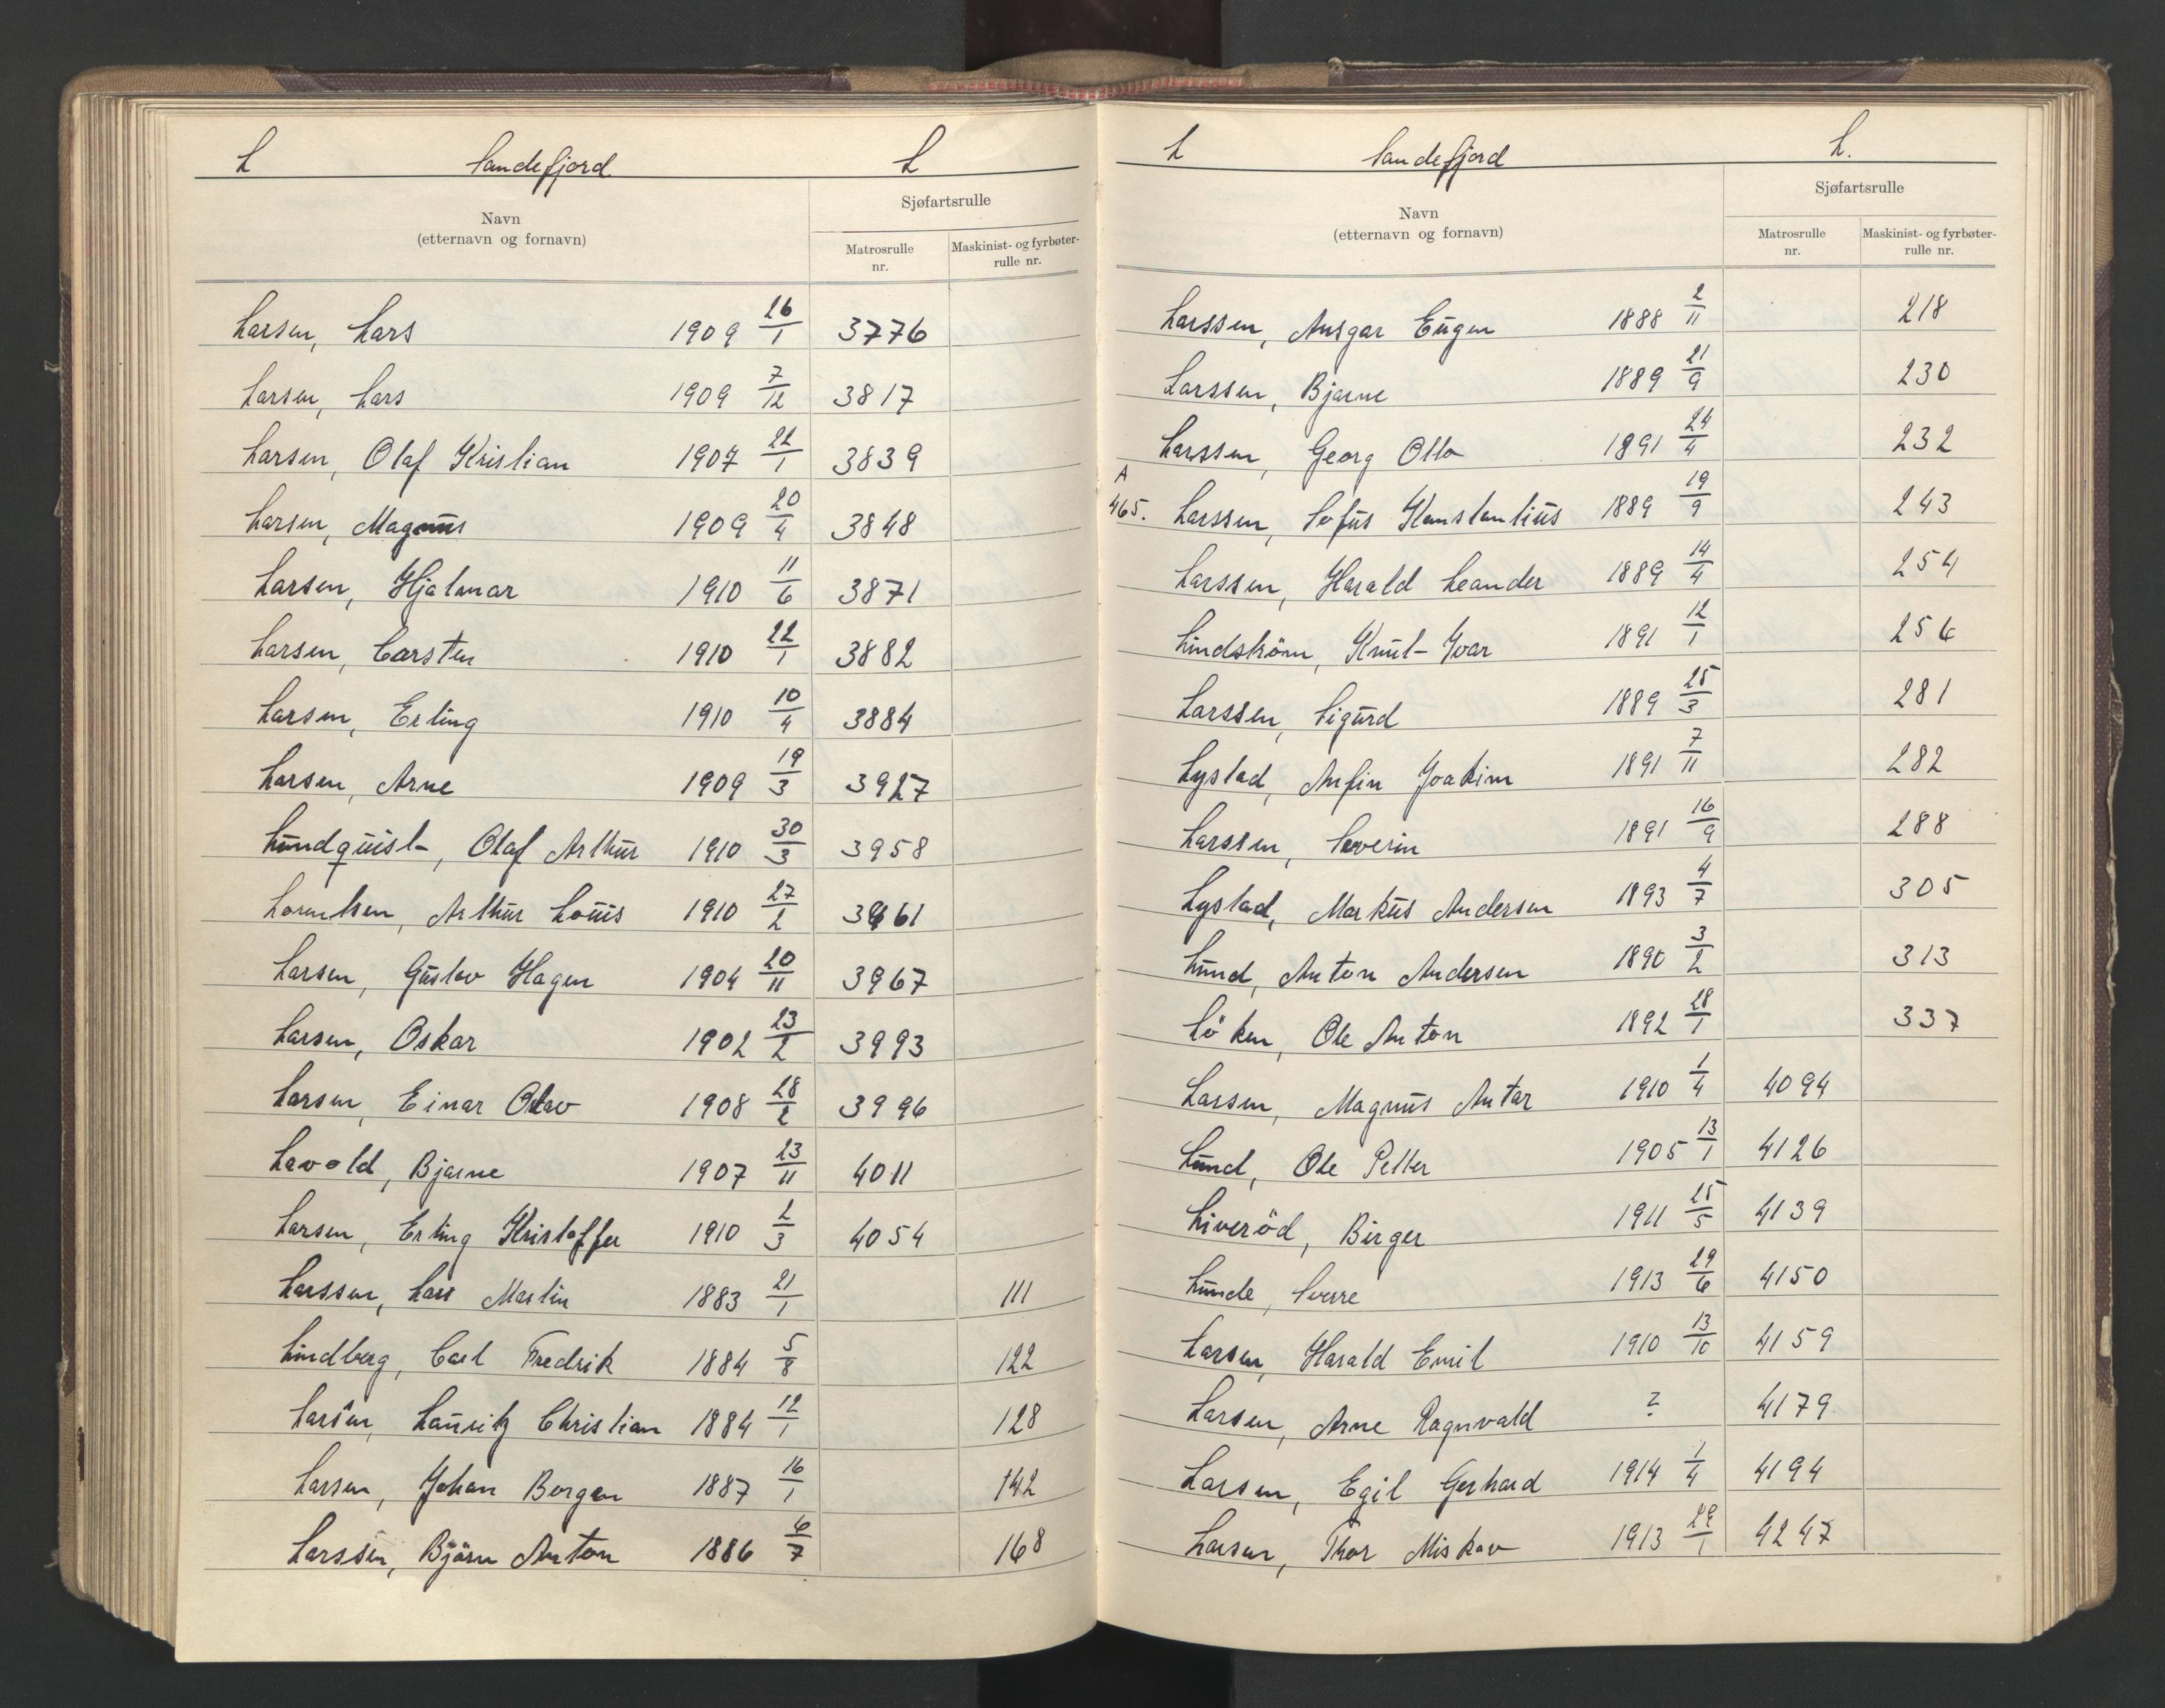 L Sandefjord L
Sjøfartsrulle
Navn
(etternavn og fornavn)
Matrosrulle nr.
Maskinist- og fyrbøter-rulle nr.
Larsen, Lars 1909 26/1 3776
Larsen, Lars 1909 7/12 3817
Larsen, Olaf Kristian 1907 22/1 3839
Larsen, Magnus 1909 20/4 3848
Larsen, Hjalmar 1910 11/6 3871
Larsen, Carsten 1910 22/1 3882
Larsen, Erling 1910 10/4 3884
Larsen, Arne 1909 19/3 3927
Lundquist, Olaf Arthur 1910 30/3 3958
Lorentsen, Arthur Louis 1910 27/2 3961
Larsen, Gustav Hagen 1904 20/11 3967
Larsen, Oskar 1902 23/2 3993
Larsen, Einar Olav 1908 28/2 3996
Lavold, Bjarne 1907 23/11 4011
Larsen, Erling Kristoffer 1910 2/3 4054
Larssen, Lars Martin 1883 21/1 111
Lindberg, Carl Fredrik 1884 5/8 122
Larsen, Lauritz Christian 1884 12/1 128
Larsen, Johan Borgen 1887 16/1 142
Larssen, Björn Anton 1886 6/7 168
L Sandefjord L.
Sjøfartsrulle
Navn
(etternavn og fornavn)
Matrosrulle nr.
Maskinist- og fyrbøter-rulle nr.
Larssen, Ansgar Eugen 1888 2/11 218
Larssen, Bjarne 1889 21/9 230
Larssen, Georg Otto 1891 24/4 232
A
465. Larssen, Sofus Konstantius 1889 19/9 243
Larssen, Harald Leander 1889 14/4 254
Lindström, Knut-Ivar 1891 12/1 256
Larssen, Sigurd 1889 25/3 281
Lystad, Anfin Joakim 1891 7/11 282
Larssen, Severin 1891 16/9 288
Lystad, Markus Andersen 1893 4/7 305
Lund, Anton Andersen 1890 3/2 313
Löken, Ole Anton 1892 28/1 337
Larsen, Magnus Antar 1910 1/4 4094
Lund, Ole Petter 1905 13/1 4126
Liveröd, Birger 1911 25/5 4139
Lunde, Sverre 1913 29/6 4150
Larsen, Harald Emil 1910 13/10 4159
Larsen, Arne Ragnvald ? 4179
Larsen, Egil Gerhard 1914 1/4 4194
Larsen, Thor Miskav 1913 29/1 4247